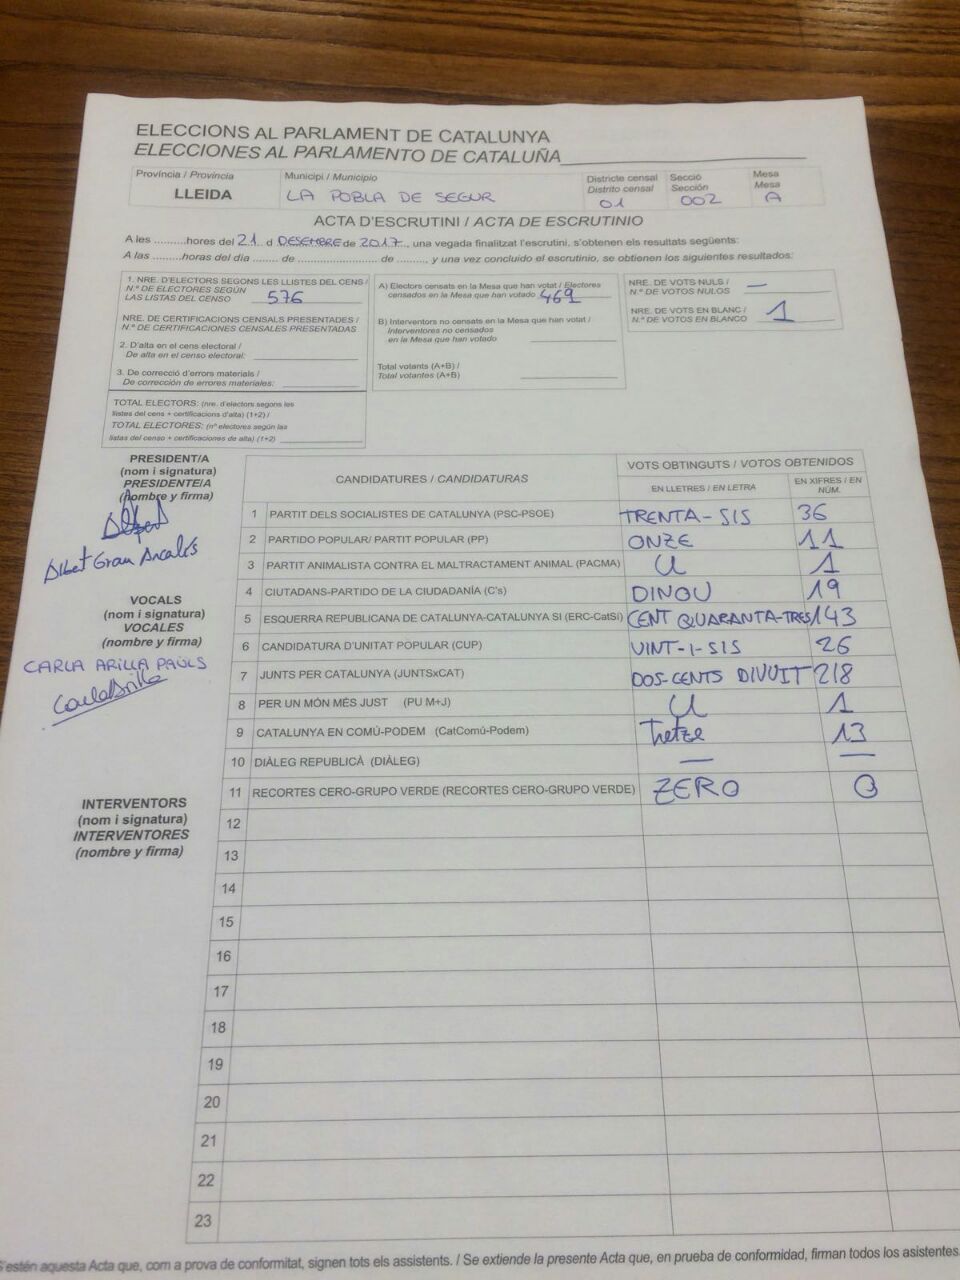 ELECCIONS AL PARLAMENT DE CATALUNYA
ELECCIONES AL PARLAMENTO DE CATALUÑA
Província / Provincia
LLEIDA
Municipi / Municipio
LA POBLA DE SEGUR
Districte censal
Distrito censal
01
Secció
Sección
002
Mesa
Mesa
A
ACTA D'ESCRUTINI / ACTA DE ESCRUTINIO
A les ..........hores del 21 d DESEMBRE de 2017.., una vegada finalitzat l'escrutini, s'obtenen els resultats següents:
A las ..........horas del día ....... de ........................ de ........, y una vez concluido el escrutinio, se obtienen los siguientes resultados:
1. NRE. D'ELECTORS SEGONS LES LLISTES DEL CENS /
N.º DE ELECTORES SEGÚN
LAS LISTAS DEL CENSO 576
NRE. DE CERTIFICACIONS CENSALS PRESENTADES /
N.º DE CERTIFICACIONES CENSALES PRESENTADAS
2. D'alta en el cens electoral /
De alta en el censo electoral:
3. De correcció d'errors materials /
De corrección de errores materiales:
TOTAL ELECTORS: (nre. d'electors segons les
llistes del cens + certificacions d'alta) (1+2) /
TOTAL ELECTORES: (nº electores según las
listas del censo + certificaciones de alta) (1+2)
A) Electors censats en la Mesa que han votat / Electores
censados en la Mesa que han votado 469
B) Interventors no censats en la Mesa que han votat /
Interventores no censados
en la Mesa que han votado
Total votants (A+B) /
Total votantes (A+B)
NRE. DE VOTS NULS /
N.º DE VOTOS NULOS —
NRE. DE VOTS EN BLANC /
N.º DE VOTOS EN BLANCO 1
PRESIDENT/A
(nom i signatura)
PRESIDENTE/A
(nombre y firma)
Albet Grau
VOCALS
(nom i signatura)
VOCALES
(nombre y firma)
CARLA ARILLA PAÜLS
Carla Arilla
INTERVENTORS
(nom i signatura)
INTERVENTORES
(nombre y firma)
CANDIDATURES / CANDIDATURAS
VOTS OBTINGUTS / VOTOS OBTENIDOS
EN LLETRES / EN LETRA
EN XIFRES / EN NÚM.
1 PARTIT DELS SOCIALISTES DE CATALUNYA (PSC-PSOE) TRENTA-SIS 36
2 PARTIDO POPULAR/ PARTIT POPULAR (PP) ONZE 11
3 PARTIT ANIMALISTA CONTRA EL MALTRACTAMENT ANIMAL (PACMA) U 1
4 CIUTADANS-PARTIDO DE LA CIUDADANÍA (C's) DINOU 19
5 ESQUERRA REPUBLICANA DE CATALUNYA-CATALUNYA SI (ERC-CatSi) CENT QUARANTA-TRES 143
6 CANDIDATURA D'UNITAT POPULAR (CUP) VINT-I-SIS 26
7 JUNTS PER CATALUNYA (JUNTSxCAT) DOS-CENTS DIVUIT 218
8 PER UN MÓN MÉS JUST (PU M+J) U 1
9 CATALUNYA EN COMÚ-PODEM (CatComú-Podem) Tretze 13
10 DIÀLEG REPUBLICÀ (DIÀLEG) — —
11 RECORTES CERO-GRUPO VERDE (RECORTES CERO-GRUPO VERDE) ZERO 0
12
13
14
15
16
17
18
19
20
21
22
23
S'estén aquesta Acta que, com a prova de conformitat, signen tots els assistents. / Se extiende la presente Acta que, en prueba de conformidad, firman todos los asistentes.